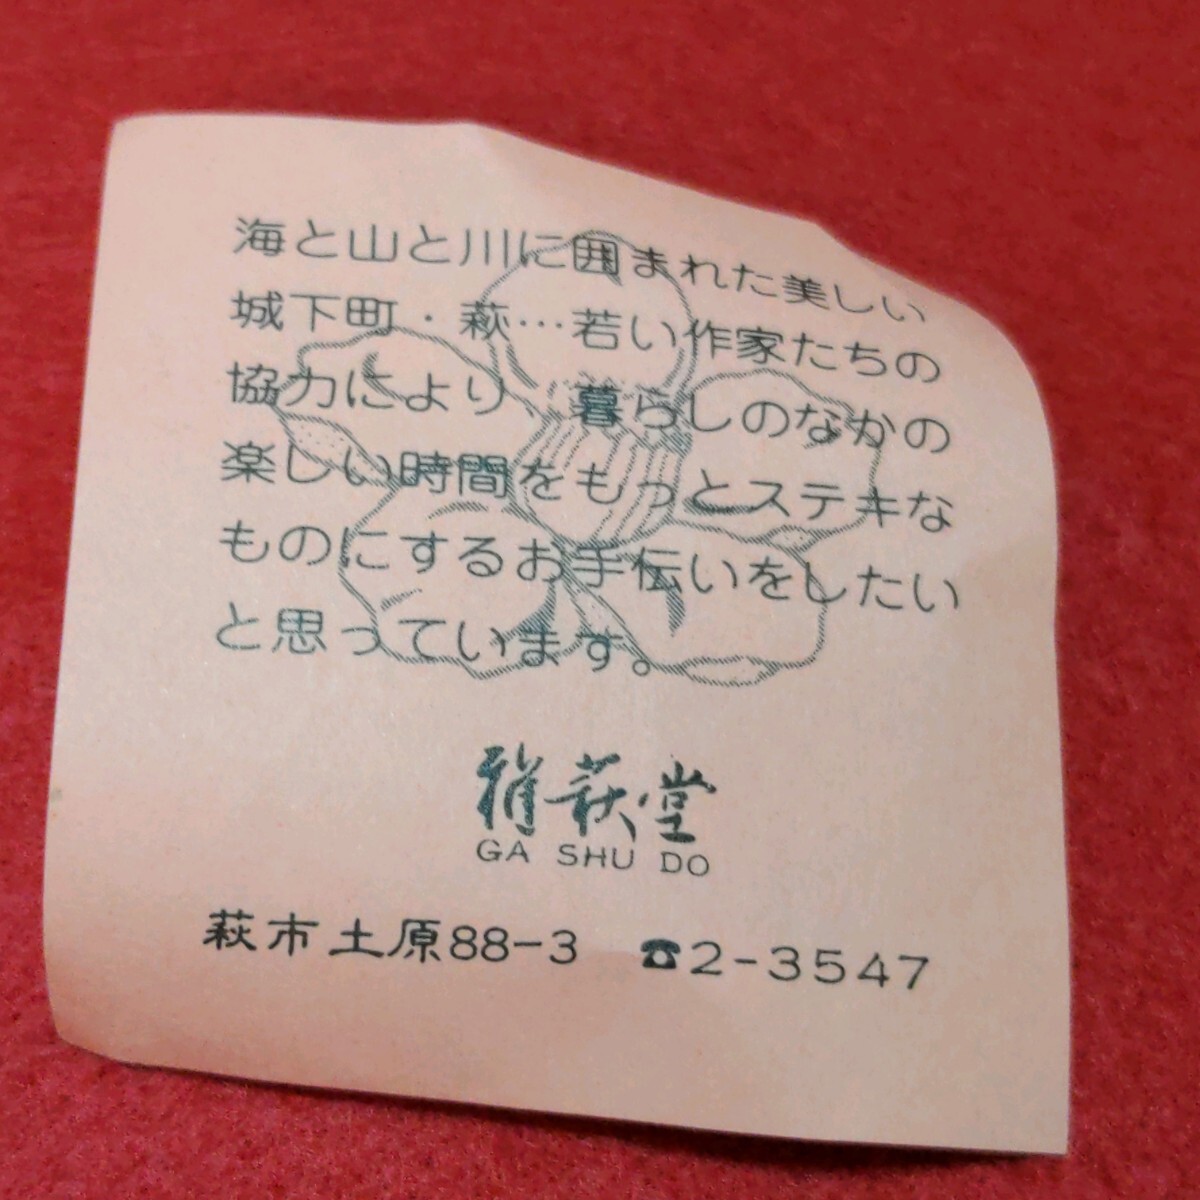 海と山と川に囲まれた美しい
城下町・萩…若い作家たちの
協力により、暮らしのなかの
楽しい時間をもっとステキな
ものにするお手伝いをしたい
と思っています。
雅萩堂
GA SHU DO
萩市土原88-3 ☎2-3547